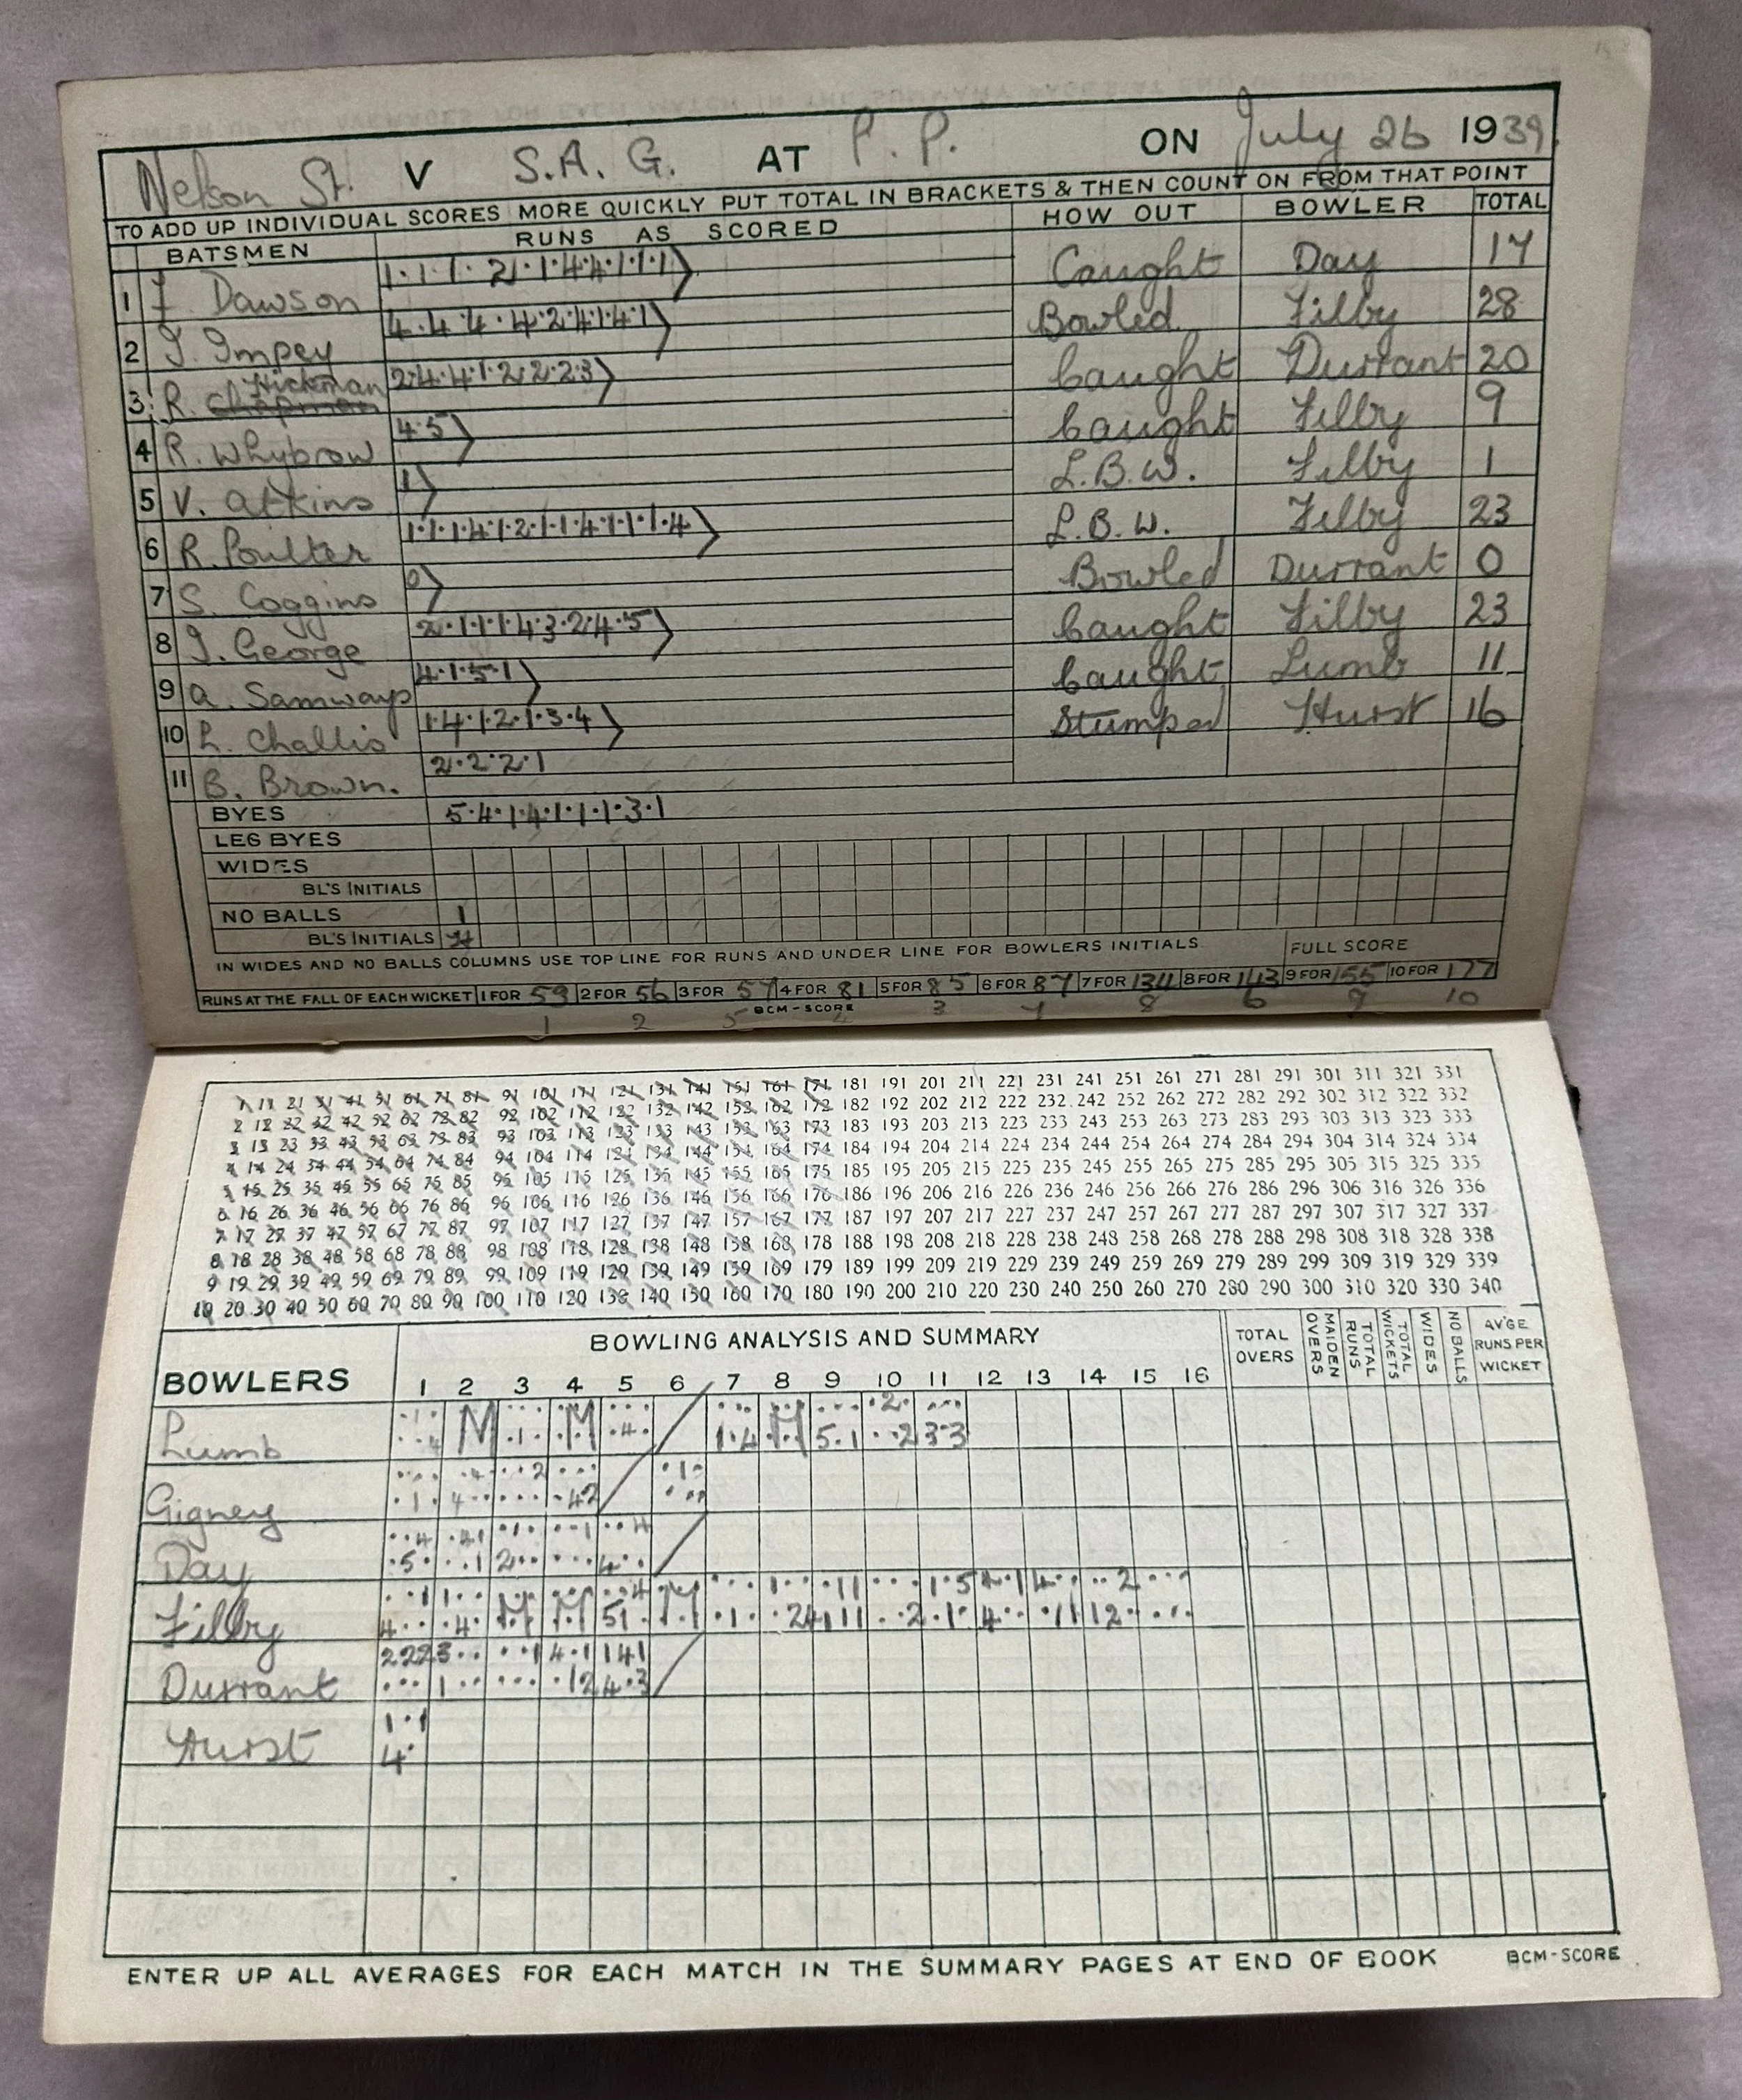 Nelson St. V S.A.G. AT P.P. ON July 26 1939.
TO ADD UP INDIVIDUAL SCORES MORE QUICKLY PUT TOTAL IN BRACKETS & THEN COUNT ON FROM THAT POINT
BATSMEN RUNS AS SCORED HOW OUT BOWLER TOTAL
1 F. Dawson 1·1·1·2·1·4·4·1·1·1 Caught Day 17
2 J. Impey 4·4·4·4·2·4·1·4·1 Bowled Filby 28
3 R. Chapman Hickman 2·4·4·1·2·2·2·3 Caught Durrant 20
4 R. Whybrow 4·5 Caught Filby 9
5 V. Atkins 1 L.B.W. Filby 1
6 R. Poulter 1·1·1·4·1·2·1·1·4·1·1·1·4 L.B.W. Filby 23
7 S. Coggins 0 Bowled Durrant 0
8 J. George 2·1·1·1·4·3·2·4·5 Caught Filby 23
9 A. Samways 4·1·5·1 Caught Lumb 11
10 L. Challis 1·4·1·2·1·3·4 Stumped Hurst 16
11 B. Brown. 2·2·2·1
BYES 5·4·1·4·1·1·1·3·1
LEG BYES
WIDES
BL'S INITIALS
NO BALLS 1
BL'S INITIALS H
IN WIDES AND NO BALLS COLUMNS USE TOP LINE FOR RUNS AND UNDER LINE FOR BOWLERS INITIALS FULL SCORE
RUNS AT THE FALL OF EACH WICKET 1 FOR 53 2 FOR 56 3 FOR 57 4 FOR 81 5 FOR 85 6 FOR 87 7 FOR 134 8 FOR 143 9 FOR 155 10 FOR 177
BCM-SCORE
1 2 5 4 3 7 8 6 9 10
1 11 21 31 41 51 61 71 81 91 101 111 121 131 141 151 161 171 181 191 201 211 221 231 241 251 261 271 281 291 301 311 321 331
2 12 22 32 42 52 62 72 82 92 102 112 122 132 142 152 162 172 182 192 202 212 222 232 242 252 262 272 282 292 302 312 322 332
3 13 23 33 43 53 63 73 83 93 103 113 123 133 143 153 163 173 183 193 203 213 223 233 243 253 263 273 283 293 303 313 323 333
4 14 24 34 44 54 64 74 84 94 104 114 124 134 144 154 164 174 184 194 204 214 224 234 244 254 264 274 284 294 304 314 324 334
5 15 25 35 45 55 65 75 85 95 105 115 125 135 145 155 165 175 185 195 205 215 225 235 245 255 265 275 285 295 305 315 325 335
6 16 26 36 46 56 66 76 86 96 106 116 126 136 146 156 166 176 186 196 206 216 226 236 246 256 266 276 286 296 306 316 326 336
7 17 27 37 47 57 67 77 87 97 107 117 127 137 147 157 167 177 187 197 207 217 227 237 247 257 267 277 287 297 307 317 327 337
8 18 28 38 48 58 68 78 88 98 108 118 128 138 148 158 168 178 188 198 208 218 228 238 248 258 268 278 288 298 308 318 328 338
9 19 29 39 49 59 69 79 89 99 109 119 129 139 149 159 169 179 189 199 209 219 229 239 249 259 269 279 289 299 309 319 329 339
10 20 30 40 50 60 70 80 90 100 110 120 130 140 150 160 170 180 190 200 210 220 230 240 250 260 270 280 290 300 310 320 330 340
BOWLING ANALYSIS AND SUMMARY
BOWLERS 1 2 3 4 5 6 7 8 9 10 11 12 13 14 15 16 TOTAL OVERS MAIDEN OVERS TOTAL RUNS TOTAL WICKETS WIDES NO BALLS AV'GE RUNS PER WICKET
Lumb
Gigney
Day
Filby
Durrant
Hurst
ENTER UP ALL AVERAGES FOR EACH MATCH IN THE SUMMARY PAGES AT END OF BOOK BCM-SCORE